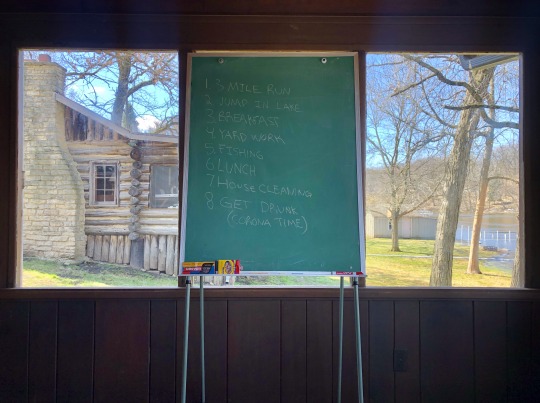 1 3 MILE RUN
2 JUMP IN LAKE
3 BREAKFAST
4 YARD WORK
5 FISHING
6 LUNCH
7 HOUSE CLEANING
8 GET DRUNK
(CORONA TIME)